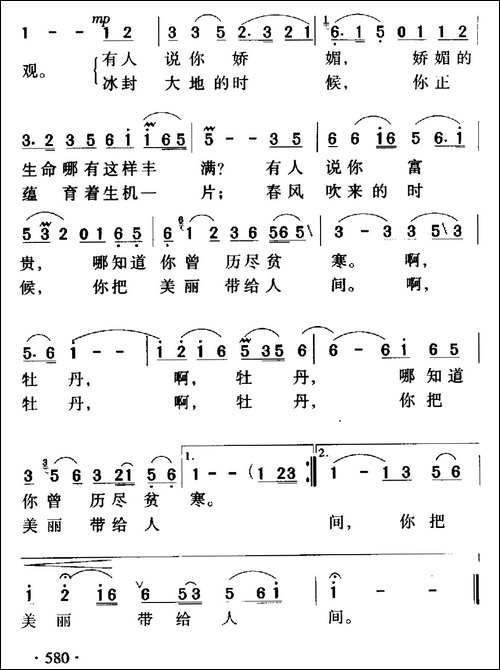 mp
1 - - 1 2 | 3 3 5 2· 3 2 1 | 6· 1 5 0 1 1 2
观。 有人 说你 娇 媚, 娇媚的
冰封 大地的时 候, 你正
3· 2 3 5 6 1 1 6 5 | 5 - - 3 5 | 6 6 1 6 5 6· 1
生命哪有这样丰 满? 有人 说你 富
蕴 育着生机一 片; 春风 吹来的时
5 3 2 0 1 6 5 | 6 1 2 3 6 5 6 5 | 3 - 3 3 5 3
贵, 哪知道 你曾 历尽贫 寒。 啊,
候, 你把 美丽 带给人 间。 啊,
5· 6 1 - - | 1 2 1 6 5 3 5 6 | 6 - 6 1 6 5
牡 丹, 啊, 牡 丹, 哪知道
牡 丹, 啊, 牡 丹, 你把
3 5 6 3 2 1 5 6 | 1. 1 - - ( 1 2 3 :‖ 2. 1 - 1 3 5 6
你曾 历尽贫 寒。
美丽 带给人 间, 你把
1 2 1 6 6 5 3 5 6 1 | 1 - - ‖
美丽 带给人 间。
· 580 ·